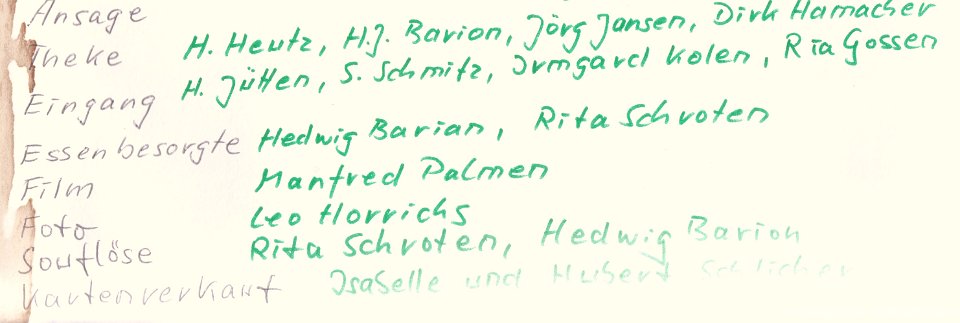 Ansage
Theke H. Heutz, H.J. Barion, Jörg Jansen, Dirk Hamacher
H. Jütten, S. Schmitz, Irmgard Kolen, Ria Gossen
Eingang
Essenbesorgte Hedwig Barian, Rita Schroten
Film Manfred Palmen
Foto Leo Horrichs
Souflöse Rita Schroten, Hedwig Barion
Kartenverkauf Isabelle und Hubert Schlicher